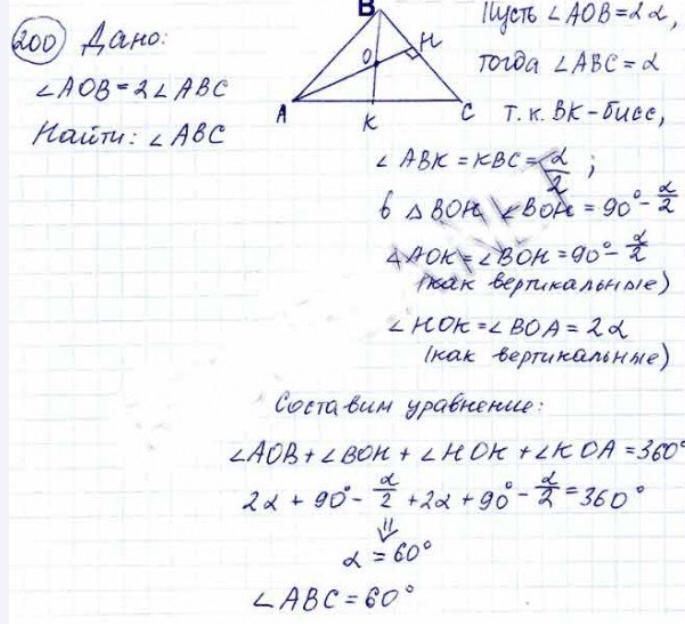 200 Дано:
∠AOB=2∠ABC
Найти: ∠ABC
B
O
H
A
K
C
Пусть ∠AOB=2α,
тогда ∠ABC=α
т.к. BK-бисс,
∠ABK=KBC=α/2;
в △BOH ∠BOH=90°-α/2
∠AOK=∠BOH=90°-α/2
(как вертикальные)
∠HOK=∠BOA=2α
(как вертикальные)
Составим уравнение:
∠AOB+∠BOH+∠HOK+∠KOA=360°
2α+90°-α/2+2α+90°-α/2=360°
⇓
α=60°
∠ABC=60°